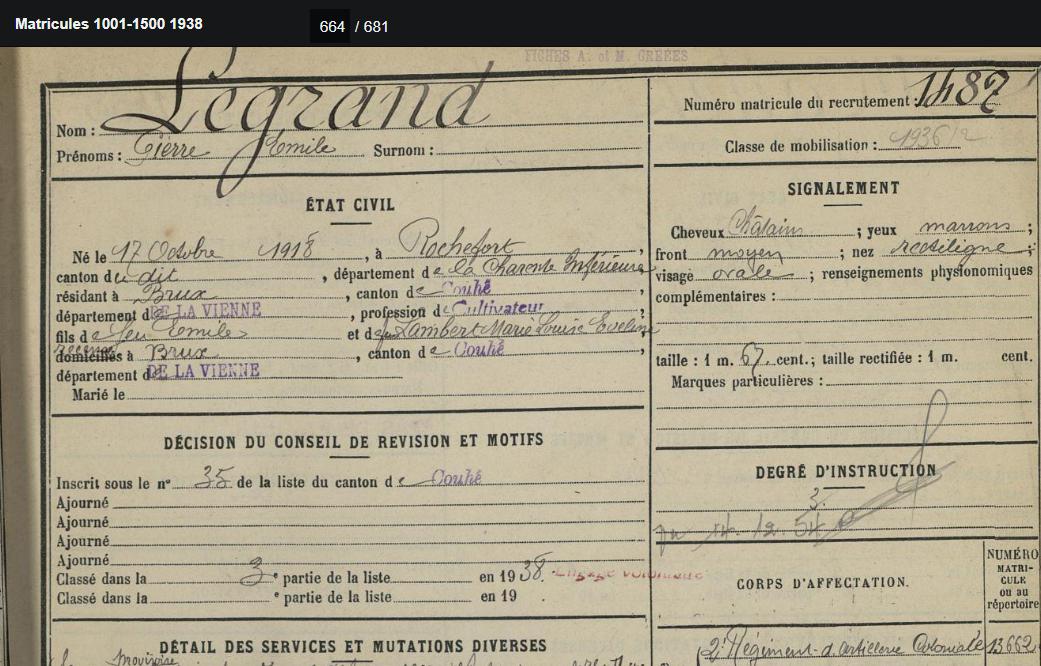 Matricules 1001-1500 1938
664 / 681
FICHES A. et M. CRÉÉES
Nom : Legrand
Prénoms : Pierre Emile Surnom :
Numéro matricule du recrutement : 1487
Classe de mobilisation : 1936/2
ÉTAT CIVIL
Né le 17 Octobre 1918, à Rochefort,
canton du dit, département de la Charente Inférieure
résidant à Brux, canton de Couhé,
département DE LA VIENNE, profession de Cultivateur
fils de feu Emile et de feu Lambert Marie Louise Eveline
domiciliés à Brux, canton de Couhé,
département DE LA VIENNE
Marié le
SIGNALEMENT
Cheveux Châtains ; yeux marrons ;
front moyen ; nez rectiligne ;
visage ovale ; renseignements physionomiques
complémentaires :
taille : 1 m. 67 cent.; taille rectifiée : 1 m. cent.
Marques particulières :
DÉCISION DU CONSEIL DE REVISION ET MOTIFS
Inscrit sous le nº 35 de la liste du canton de Couhé
Ajourné
Ajourné
Ajourné
Ajourné
Classé dans la 3 e partie de la liste en 1938. Engagé volontaire
Classé dans la e partie de la liste en 19 .
DEGRÉ D'INSTRUCTION
3.
14.12.54
CORPS D'AFFECTATION.
NUMÉRO
MATRI-
CULE
ou au
répertoire
DÉTAIL DES SERVICES ET MUTATIONS DIVERSES
2e Régiment d'Artillerie Coloniale 13662